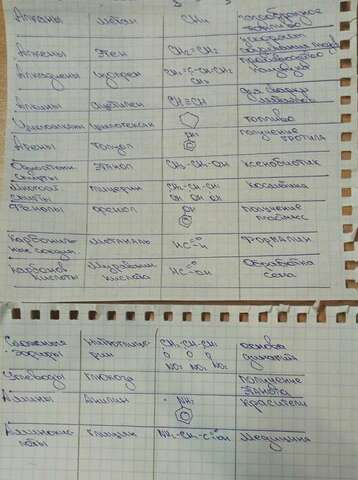 Алканы Метан CH₄ газообразное топливо
Алкены Этен CH₂=CH₂ ускорит созревание плодов
Алкадиены изопрен CH₂=C-CH=CH₂
CH₃
производство каучука
Алкины Ацетилен CH≡CH для сварки металлов
Циклоалканы циклогексан топливо
Арены толуол CH₃ получение тротила
Одноатомн. спирты Этанол CH₃-CH₂-OH ксенобиотик
Многоат. спирты глицерин CH₂-CH-CH₂
OH OH OH
косметика
Фенолы фенол OH получение пластмасс
Карбониль-
ные соедин. метаналь HC=O
H
Формалин
Карбонов. кислоты Муравьин. кислота HC=O
OH
Обработка сена
Сложные эфиры нитроглице-
рин CH₂-CH-CH₂
O O O
NO₂ NO₂ NO₂
основа динамита
Углеводы глюкоза получение этанола
Амины Анилин NH₂ красители
Аминокис-
лоты глицин NH₂-CH₂-C=O
OH
медицина